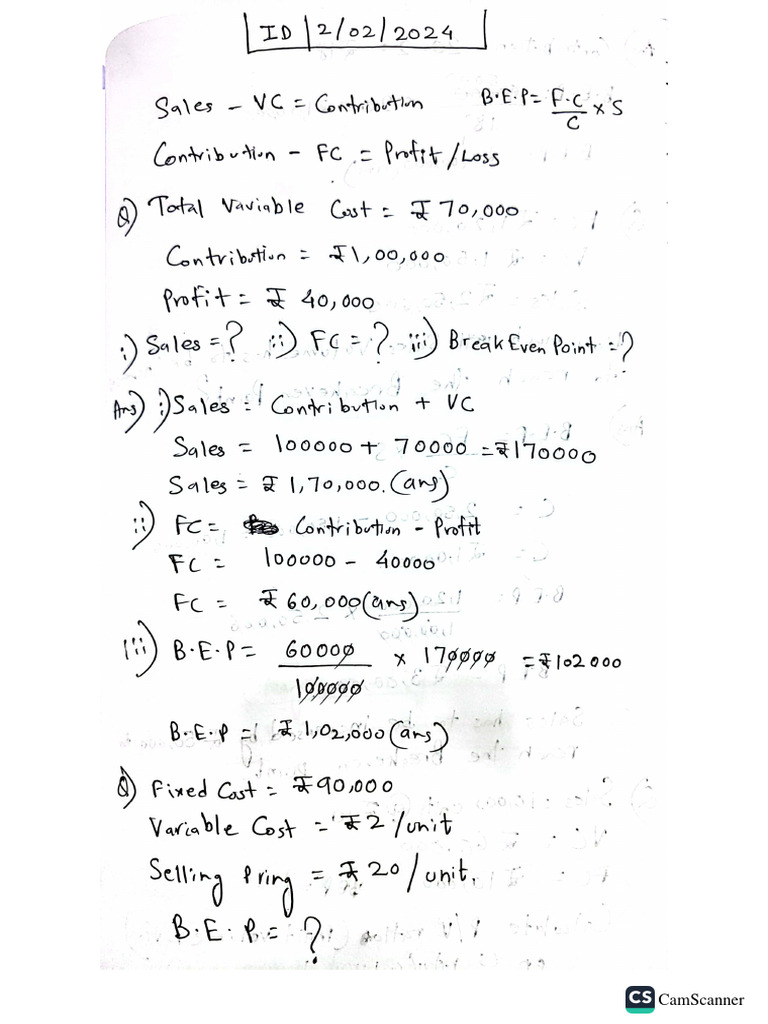 ID 2/02/2024
Sales - VC = Contribution B.E.P = F.C/C × S
Contribution - FC = Profit/Loss
Q) Total Variable Cost = ₹ 70,000
Contribution = ₹1,00,000
Profit = ₹ 40,000
i) Sales = ? ii) FC = ? iii) Break Even Point = ?
Ans) i) Sales = Contribution + VC
Sales = 100000 + 70000 = ₹170000
Sales = ₹ 1,70,000. (ans)
ii) FC = Contribution - Profit
FC = 100000 - 40000
FC = ₹ 60,000 (ans)
iii) B.E.P = 60000/100000 × 170000 = ₹102000
B.E.P = ₹ 1,02,000 (ans)
Q) Fixed Cost = ₹90,000
Variable Cost = ₹2/unit
Selling Pring = ₹ 20/unit.
B.E.P = ?
CS CamScanner